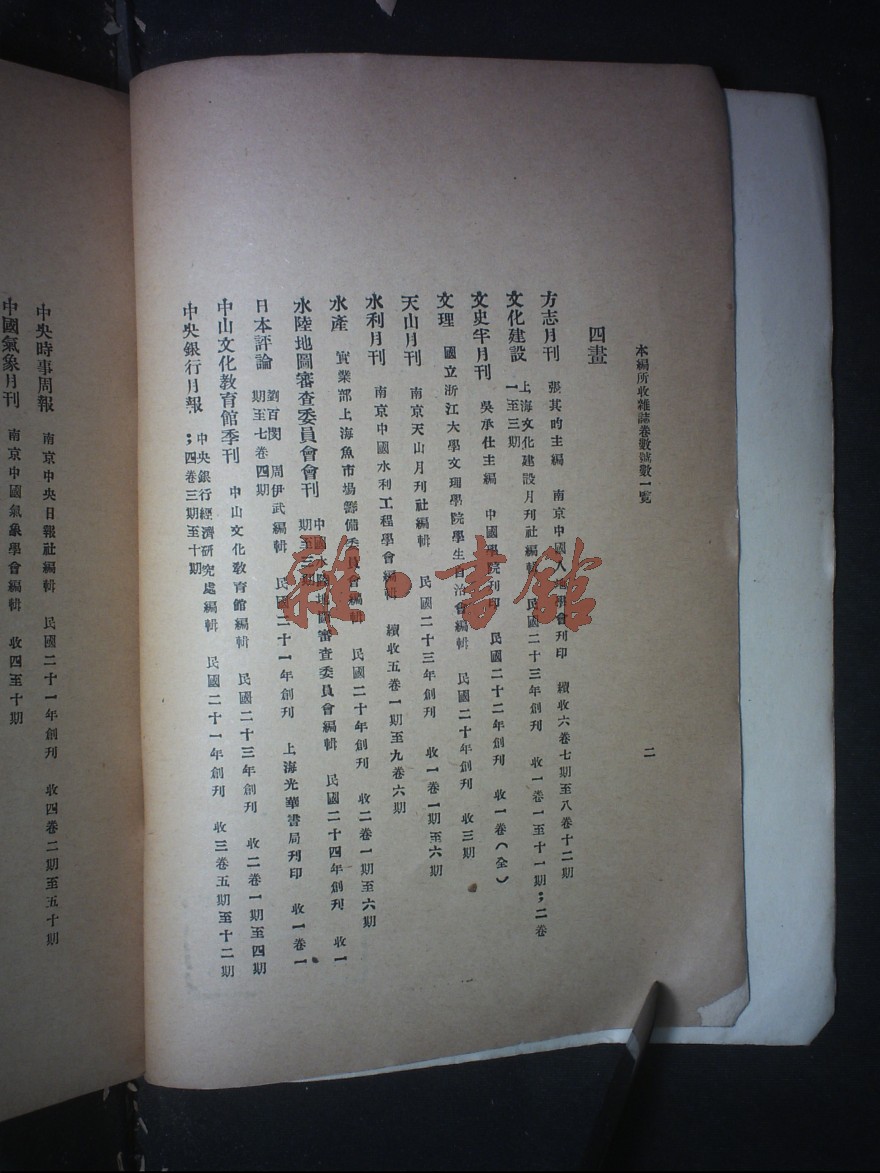 本編所收雜誌卷數號數一覽
二
四畫
方志月刊 張其昀主編 南京中國人地學會刊印 續收六卷七期至八卷十二期
文化建設 上海文化建設月刊社編輯 民國二十三年創刊 收一卷一至十一期；二卷
一至三期
文史半月刊 吳承仕主編 中國學院刊印 民國二十二年創刊 收一卷（全）
文理 國立浙江大學文理學院學生自治會編輯 民國二十年創刊 收三期
天山月刊 南京天山月刊社編輯 民國二十三年創刊 收一卷一期至六期
水利月刊 南京中國水利工程學會編輯 續收五卷一期至九卷六期
水產 實業部上海魚市場籌備委員會編輯 民國二十年創刊 收二卷一期至六期
水陸地圖審查委員會會刊 中國水陸地圖審查委員會編輯 民國二十四年創刊 收一
期至三期
日本評論 劉百閔 周伊武編輯 民國二十一年創刊 上海光華書局刊印 收一卷一
期至七卷四期
中山文化教育館季刊 中山文化教育館編輯 民國二十三年創刊 收二卷一期至四期
中央銀行月報 中央銀行經濟研究處編輯 民國二十一年創刊 收三卷五期至十二期
；四卷三期至十期
中央時事周報 南京中央日報社編輯 民國二十一年創刊 收四卷二期至五十期
中國氣象月刊 南京中國氣象學會編輯 收四至十期
雜·書館